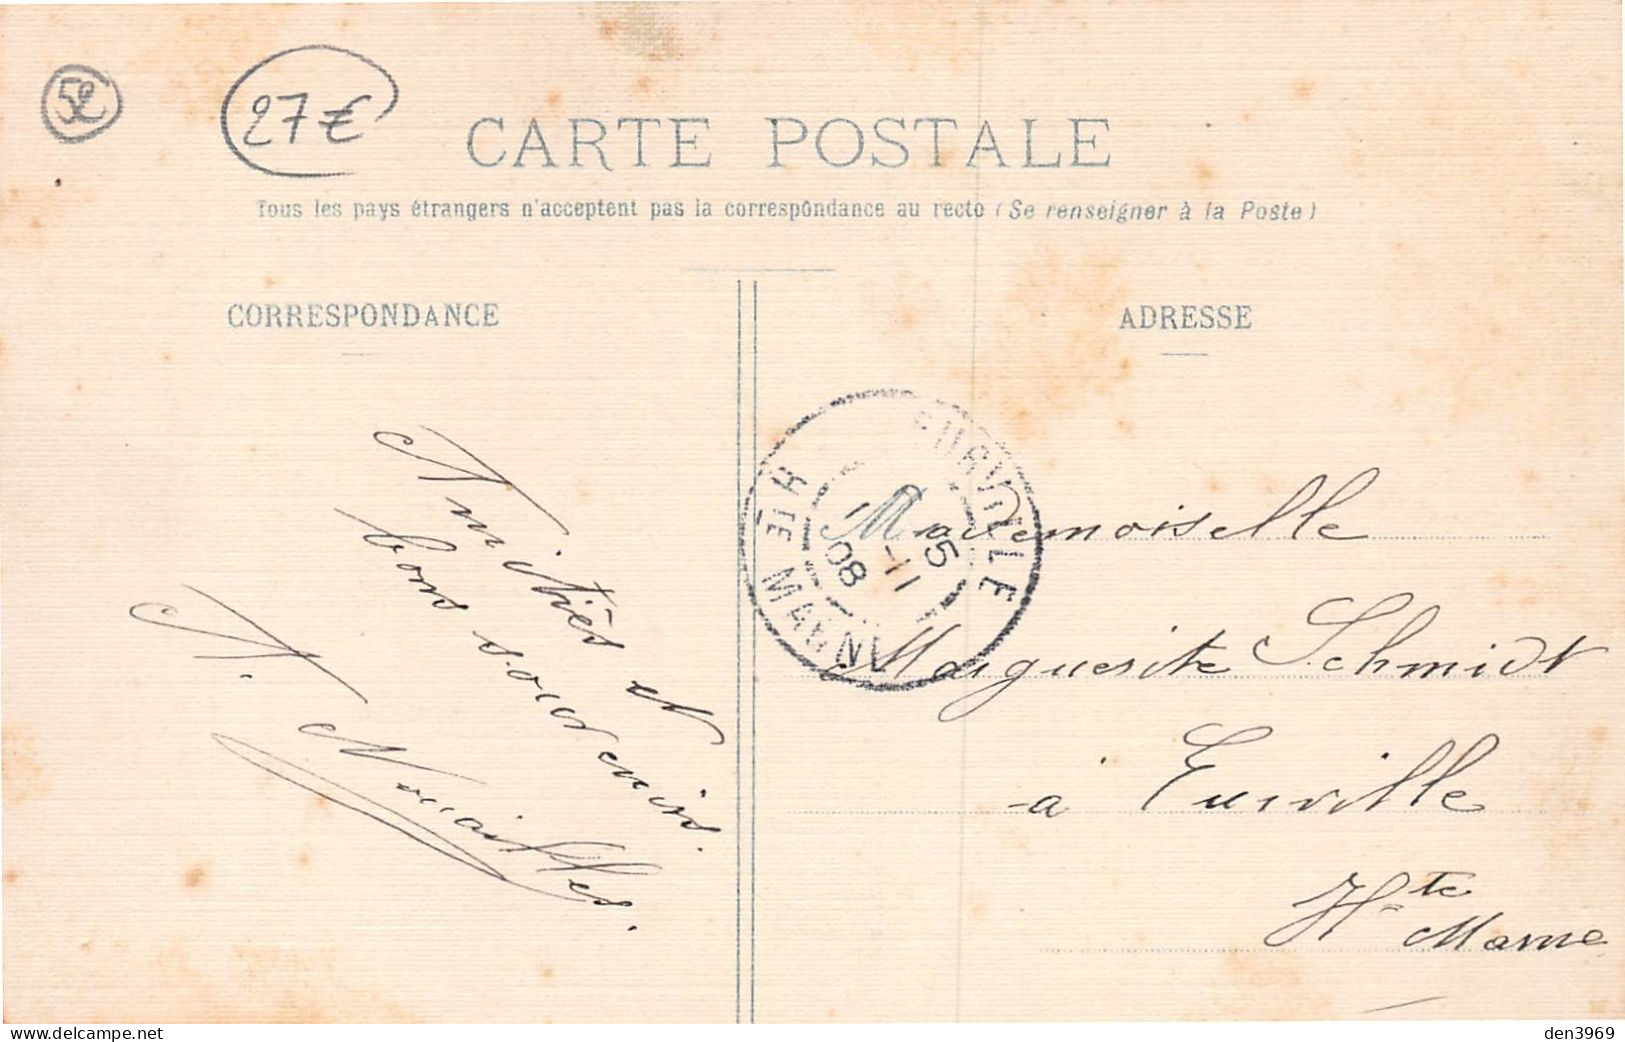 52
27€
CARTE POSTALE
Tous les pays étrangers n'acceptent pas la correspondance au recto (Se renseigner à la Poste)
CORRESPONDANCE
ADRESSE
Amitiés et
bons souvenirs.
A. Nouailles.
EURVILLE
15 -11
08
HTE MARNE
Mademoiselle
Marguerite Schmidt
à Eurville
Hte Marne
www.delcampe.net
den3969